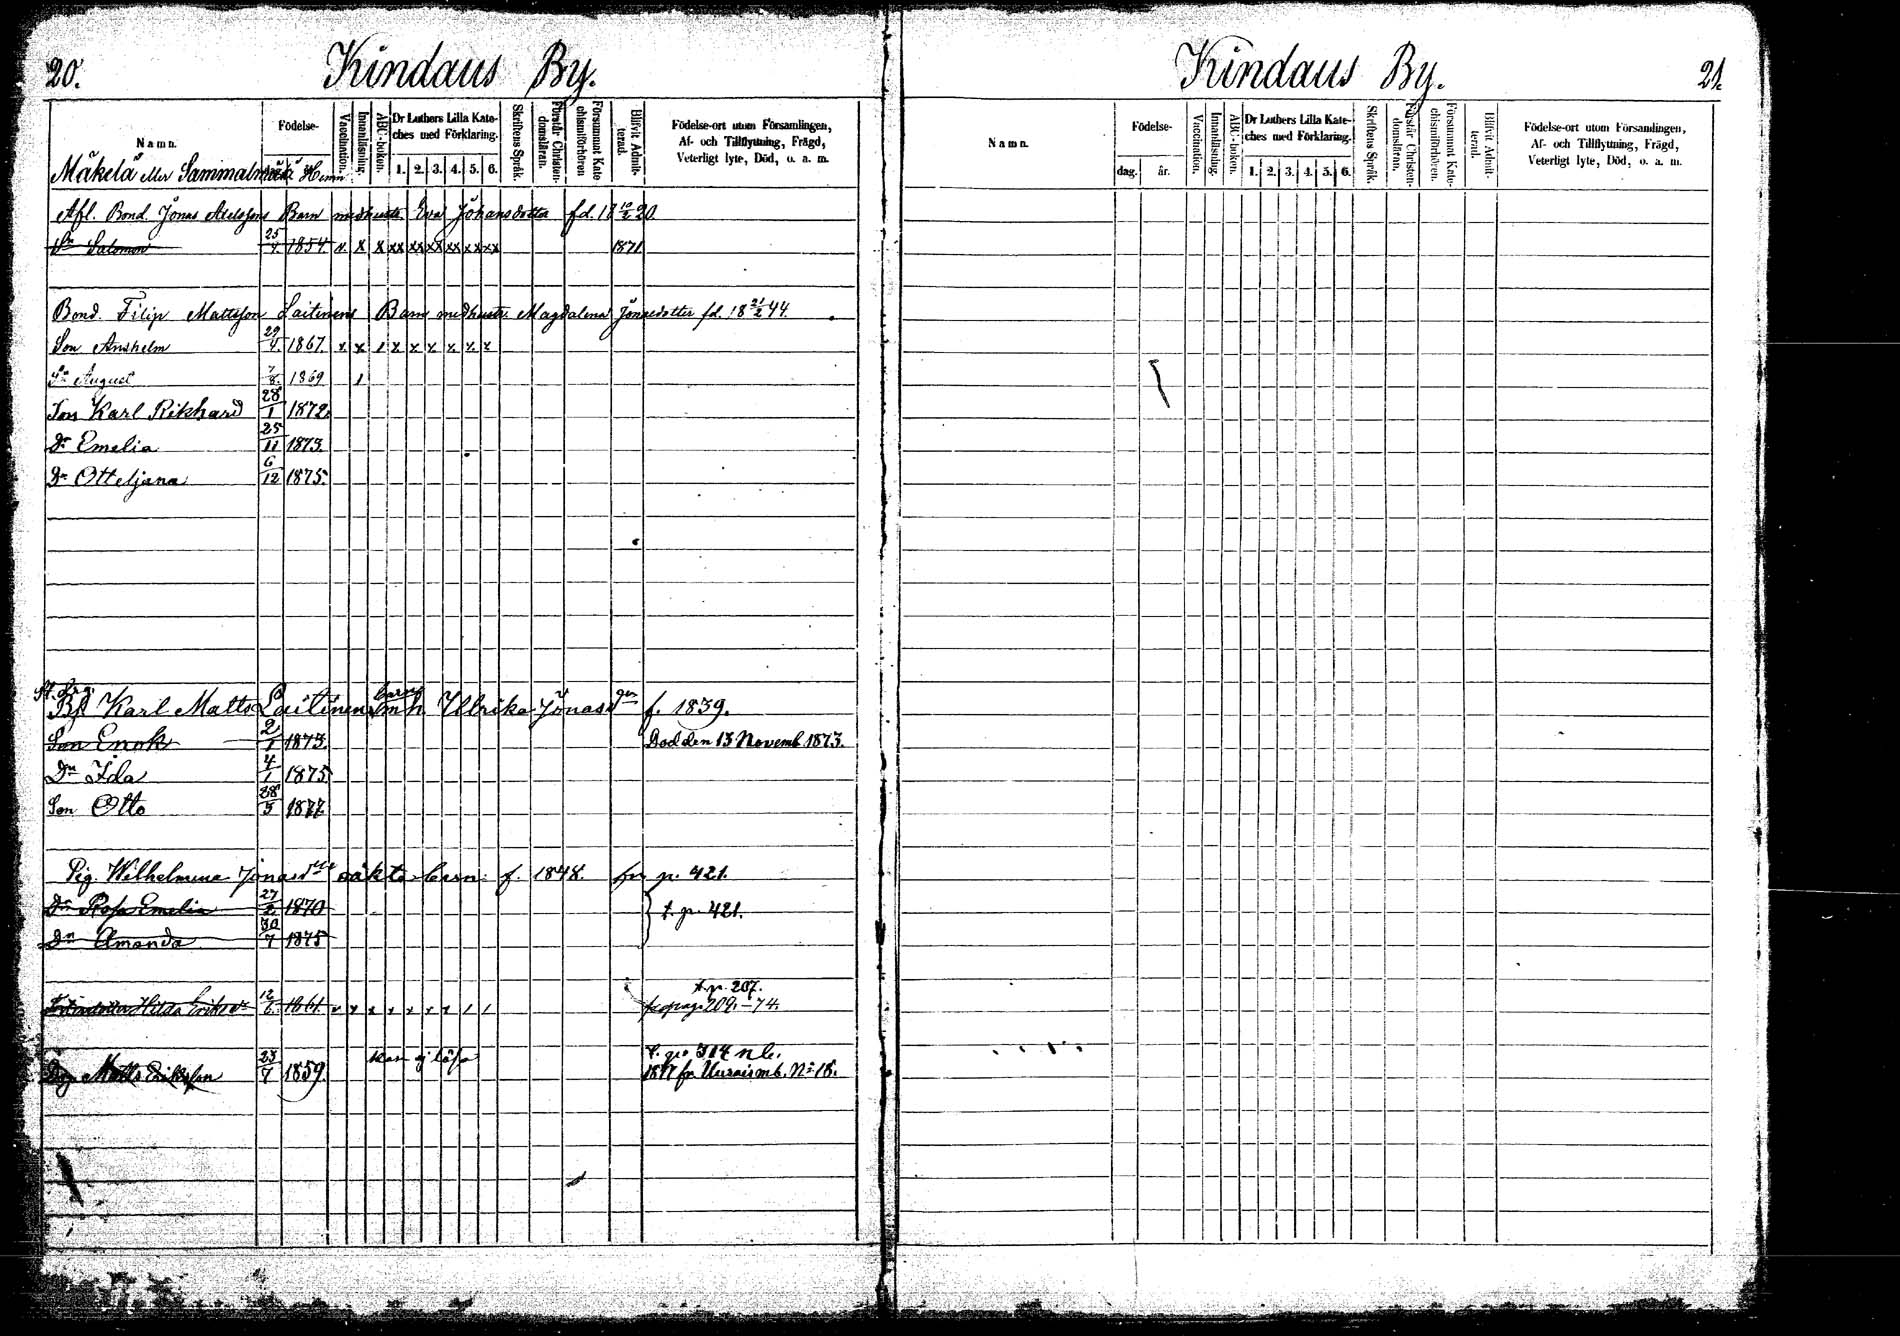 20.
Kindaus By.
Namn.
Födelse-
Vaccination.
Innanläsning.
ABC-boken.
Dr Luthers Lilla Kate-
ches med Förklaring.
1. 2. 3. 4. 5. 6.
Skriftens Språk.
Förstår Christen-
domsläran.
Försummat Kate
chismiförhören
Blifvit Admit-
terad.
Födelse-ort utom Församlingen,
Af- och Tillflyttning, Frägd,
Veterligt lyte, Död, o. a. m.
Mäkelä eller Hemn
Afl. Bond. Jonas Axelssons Barn med hustr. Eva Johansdotter fd. 18 10/2 20.
Sn Salomon 25/4. 1854. x x x xx xx xx xx xx xx 1871.
Bond. Filip Mattsson Laitinens Barn med hustr. Magdalena Jönsedotter fd. 18 21/2 44.
Son Anshelm 29/4. 1867. x x 1 x x x x x x
Sn August 7/8. 1869 1
Son Karl Rikhard 28/1 1872.
Dr Emelia 25/11 1873.
Dr Otteljana 6/12 1875.
Karl Matts Laitinens barn mh. Ullrika Jönasdn f. 1839.
Son Enok 2/1 1873. Död den 13 Novemb 1873.
Dn Ida 4/1 1875
Son Otto 28/5 1877
Pig. Wilhelmina Jönasd oäkta barn f. 1848. fr p. 421.
Dn Rosa Emelia 27/2 1870
t. p. 421.
Dn Amanda 30/7 1875
t. p. 207.
Hilda Eriksdr 12/6. 1861. x x x x x x x 1 1 fr pag. 209. -74.
kan ej läsa
t. p. 314 n b.
Matts Eriksson 23/7 1859. 1877 fr. mb. No 18.
Kindaus By.
21.
Namn.
Födelse-
dag. år.
Vaccination.
Innanläsning.
ABC-boken.
Dr Luthers Lilla Kate-
ches med Förklaring.
1. 2. 3. 4. 5. 6.
Skriftens Språk.
Förstår Christen-
domsläran.
Försummat Kate-
chismiförhören.
Blifvit Admit-
terad.
Födelse-ort utom Församlingen,
Af- och Tillflyttning, Frägd,
Veterligt lyte, Död, o. a. m.